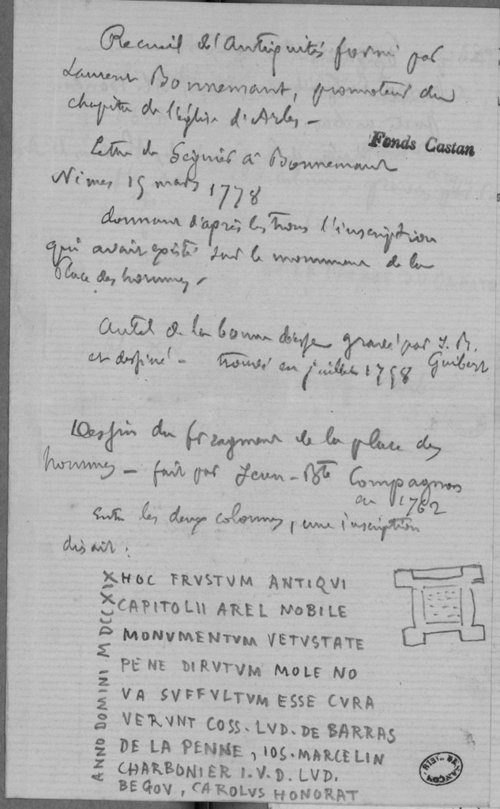 Recueil d'Antiquités formé par
Laurent Bonnemant, promoteur du
chapitre de l'église d'Arles –
Fonds Castan
Lettre de Seguier à Bonnemant
Nimes 15 mars 1778
donnant d'après les trous l'inscription
qui avait existé sur le monument de la
Place des hommes –
Autel de la bonne déesse gravé par J. B. Guibert
et dessiné – trouvé en juillet 1758
Dessin du fragment de la place des
hommes – fait par Jean-Bte Compagnon
en 1762
Entre les deux colonnes, une inscription
disait :
HOC FRVSTVM ANTIQVI
CAPITOLII AREL NOBILE
MONVMENTVM VETVSTATE
PENE DIRVTVM MOLE NO
VA SVFFVLTVM ESSE CVRA
VERVNT COSS. LVD. DE BARRAS
DE LA PENNE, IOS. MARCELIN
CHARBONIER I. V. D. LVD.
BEGOV, CAROLVS HONORAT
ANNO DOMINI MDCCXIX